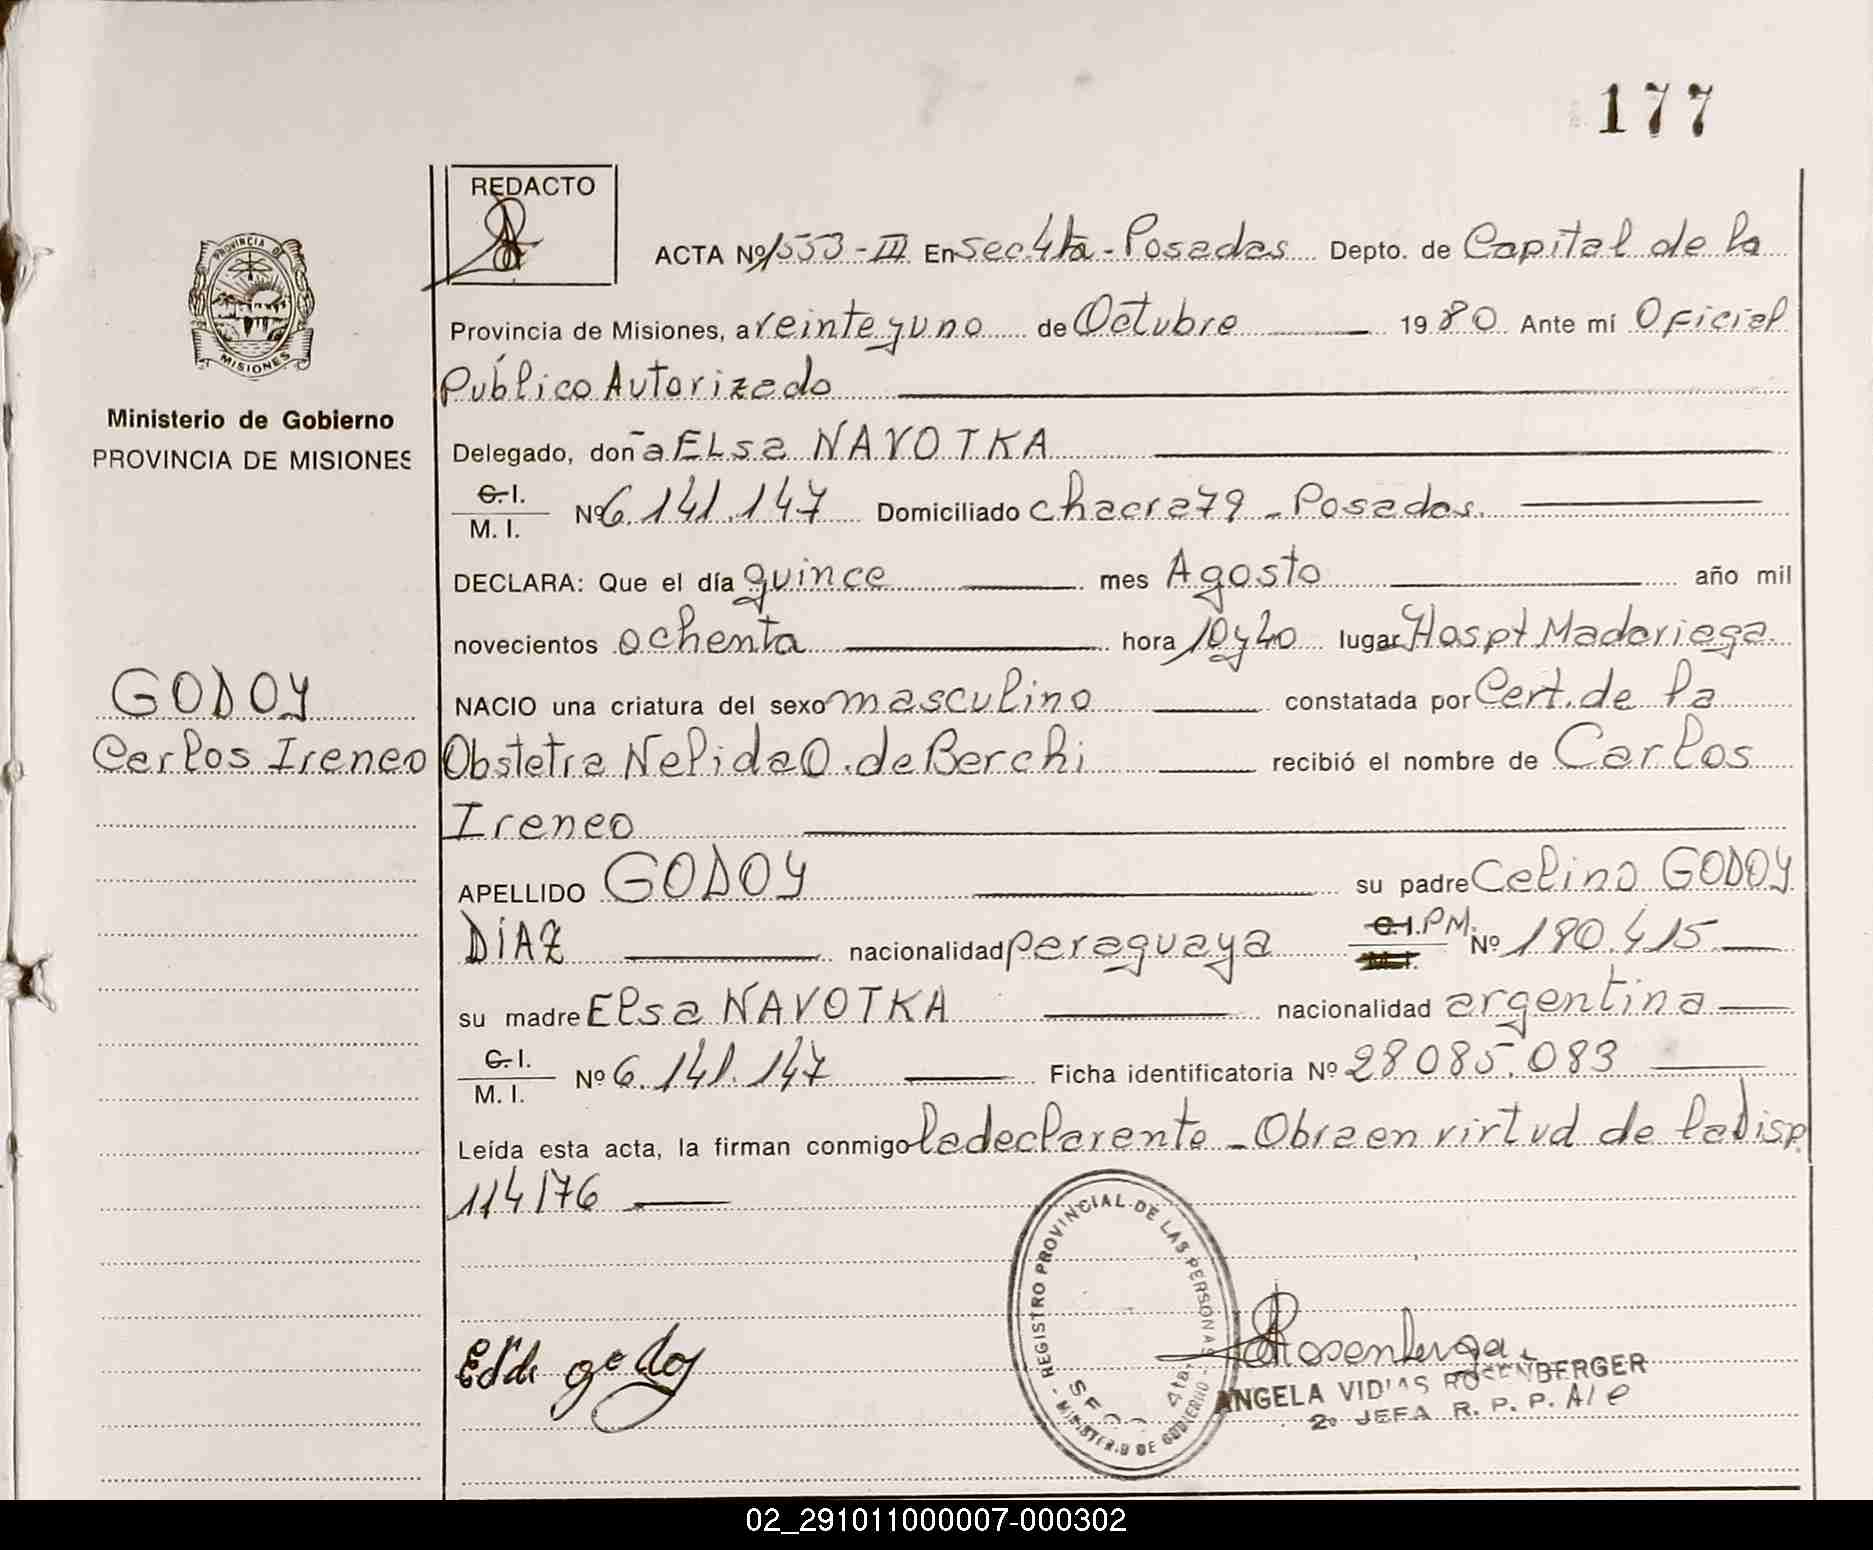 177
REDACTO
ACTA Nº 1553-III En Sec. 4ta - Posadas Depto. de Capital de la
Provincia de Misiones, a veinte y uno de Octubre 1980 Ante mí Oficial
Público Autorizado
Delegado, doña Elsa NAVOTKA
C. I. M. I. Nº 6.141.147 Domiciliado chacra 79 - Posadas.
DECLARA: Que el día quince mes Agosto año mil
novecientos ochenta hora 10 y 40 lugar Hospt Madariaga
NACIO una criatura del sexo masculino constatada por Cert. de la
Obstetra Nelida O. de Berchi recibió el nombre de Carlos
Ireneo
APELLIDO GODOY su padre Celino GODOY
DÍAZ nacionalidad paraguaya C.I. PM. M.I. Nº 190.415
su madre Elsa NAVOTKA nacionalidad argentina
C. I. M. I. Nº 6.141.147 Ficha identificatoria Nº 28085.083
Leída esta acta, la firman conmigo la declarante - Obra en virtud de la Disp.
114/76
PROVINCIA DE
MISIONES
Ministerio de Gobierno
PROVINCIA DE MISIONES
GODOY
Carlos Ireneo
REGISTRO PROVINCIAL DE LAS PERSONAS
MINISTERIO DE GOBIERNO
4ta
ANGELA VIDIAS ROSENBERGER
2º JEFA R. P. P. A/c
02_291011000007-000302